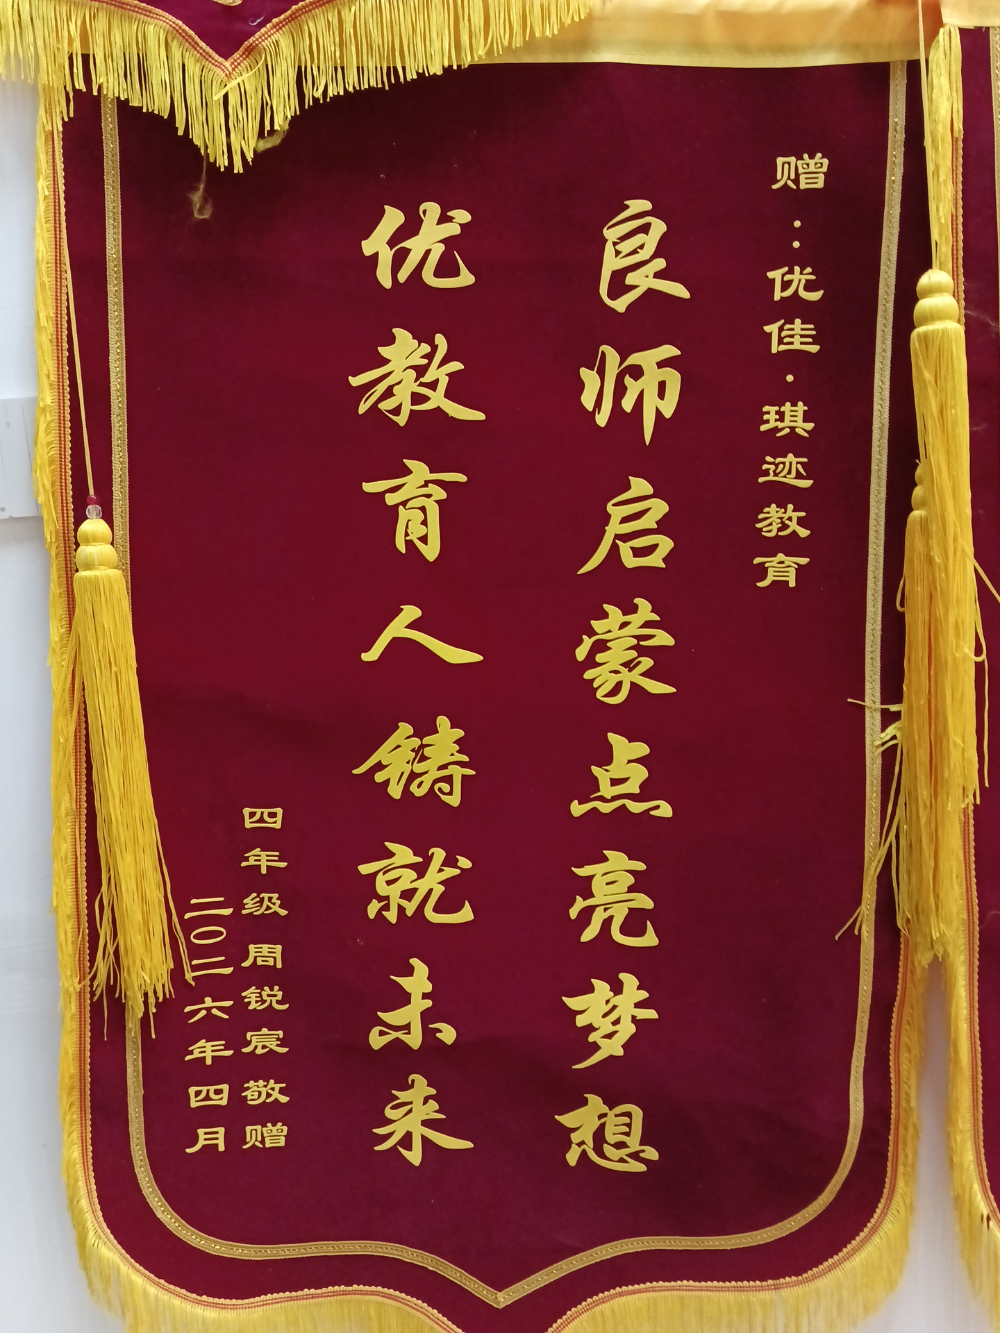 赠：优佳·琪迹教育
良师启蒙点亮梦想
优教育人铸就未来
四年级周锐宸敬赠
二〇二六年四月